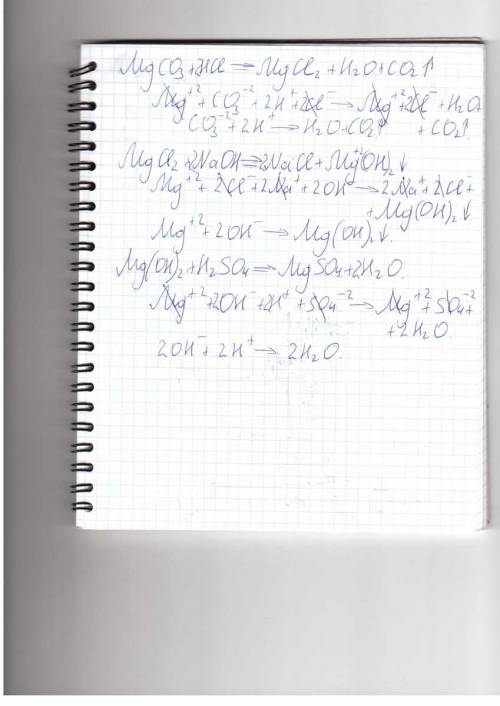 MgCO3+2HCl = MgCl2 + H2O + CO2↑
Mg+2 + CO3-2 + 2H+ + 2Cl- → Mg+2 + 2Cl- + H2O + CO2↑
CO3-2 + 2H+ → H2O + CO2↑
MgCl2 + 2NaOH = 2NaCl + Mg(OH)2↓
Mg+2 + 2Cl- + 2Na+ + 2OH- → 2Na+ + 2Cl- +
+ Mg(OH)2↓
Mg+2 + 2OH- → Mg(OH)2↓.
Mg(OH)2 + H2SO4 = MgSO4 + 2H2O.
Mg+2 + 2OH- + 2H+ + SO4-2 → Mg+2 + SO4-2 +
+ 2H2O.
2OH- + 2H+ → 2H2O.